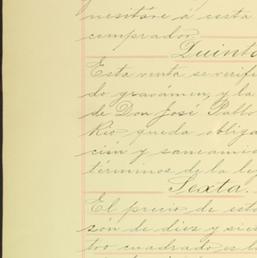 nesitare á costa
comprador.
Quinta
Esta venta se verifi
do gravámen, y la
de Don José Pablo
Rio queda obliga
ción y saneamie
términos de la le
Sexta.
El precio de esta
son de diez y sie
tro cuadrado es la